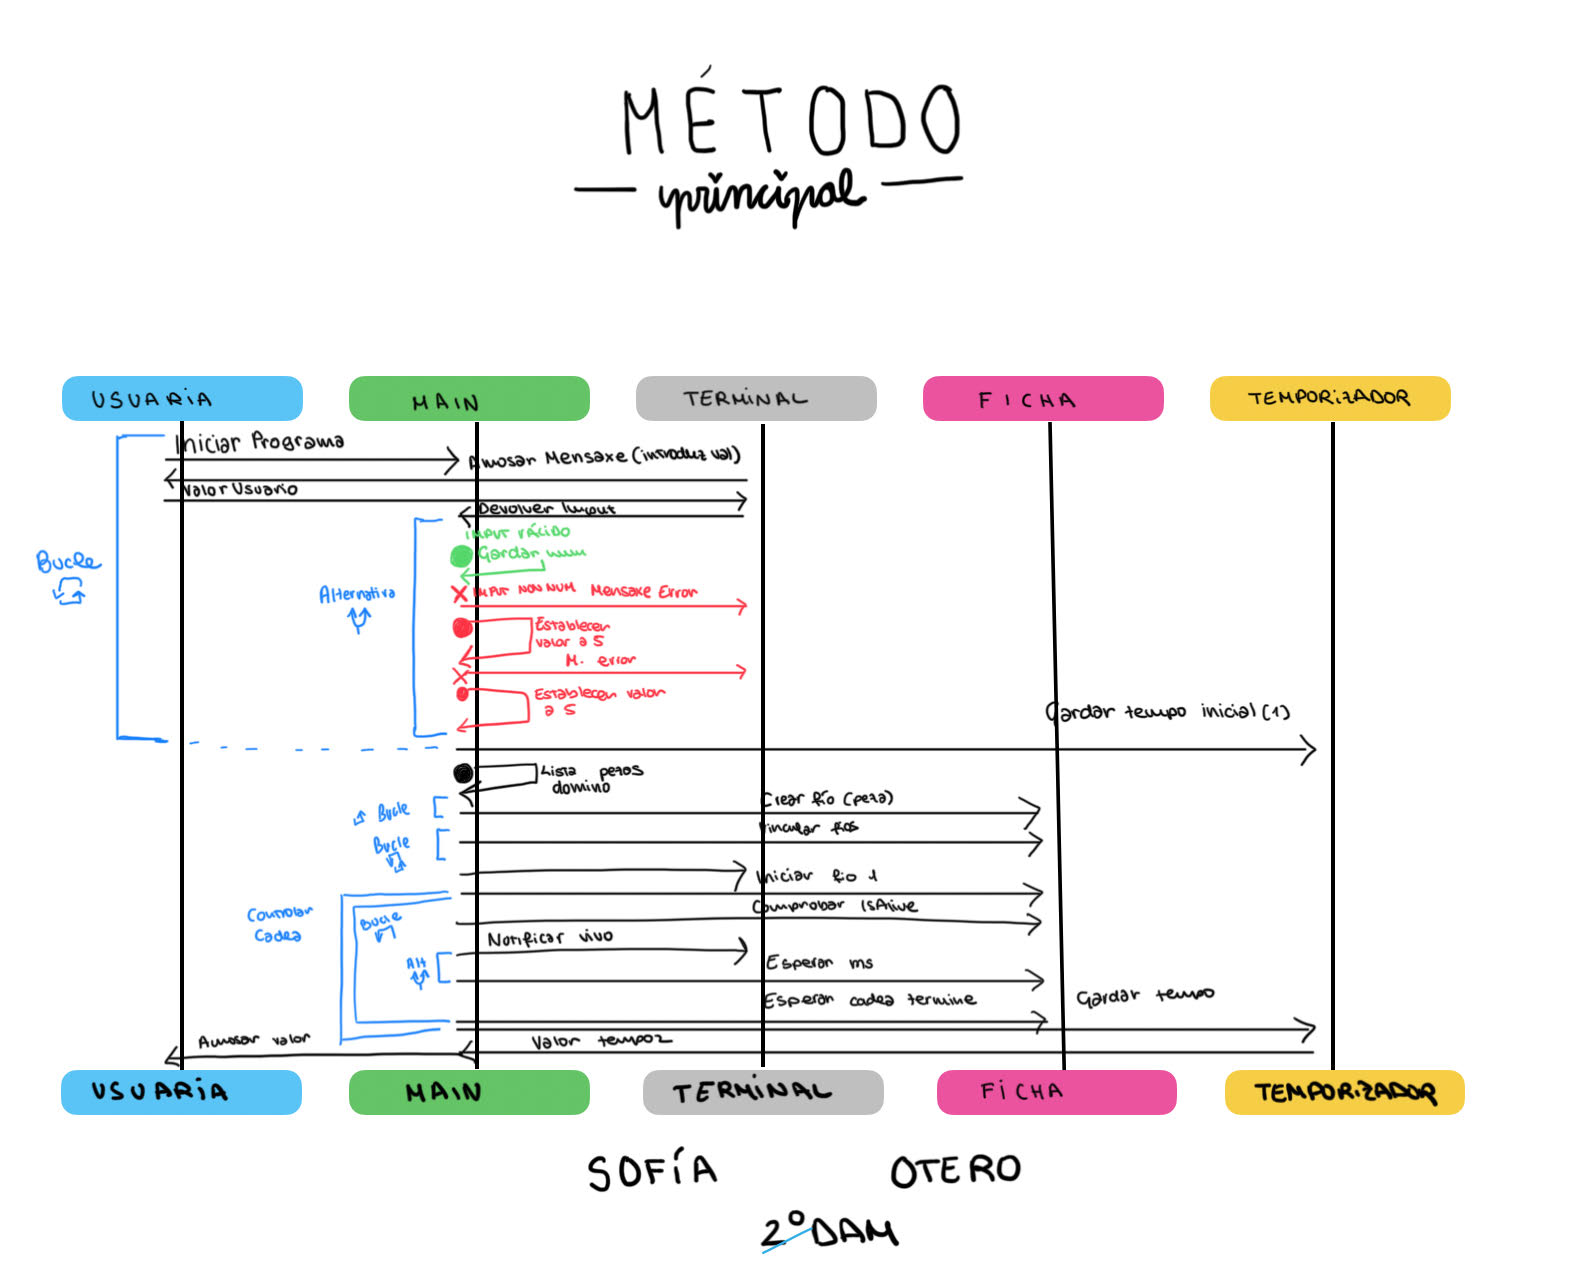 MÉTODO
principal
USUARIA
MAIN
TERMINAL
FICHA
TEMPORIZADOR
Iniciar Programa
Amosar Mensaxe (introduz val)
Valor Usuario
Devolver Imput
INPUT VÁCIDO
Gardar num
Bucle
Alternativa
IMPUT NON NUM Mensaxe Error
Establecer
valor a 5
M. error
Establecer valor
a 5
Gardar tempo inicial (1)
Lista pezas
domino
Bucle
Crear fío (peza)
Bucle
Vincular fíos
Iniciar fio 1
Controlar
Cadea
Bucle
Comprobar IsAlive
Notificar vivo
Alt
Esperar ms
Esperar cadea termine
Gardar tempo
Amosar valor
Valor tempo2
USUARIA
MAIN
TERMINAL
FICHA
TEMPORIZADOR
SOFÍA OTERO
2º DAM